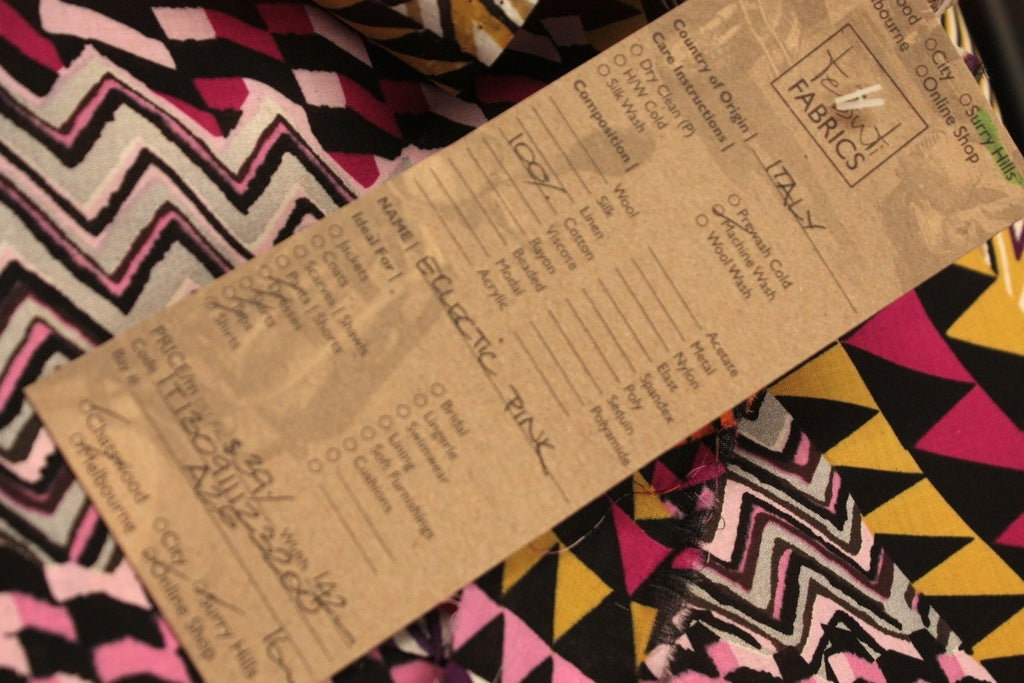 ourne
City
Online Shop
Surry Hills
Tessuti
FABRICS
Country of Origin | ITALY
Care Instructions |
Dry Clean (P)
H/W Cold
Silk Wash
Prewash Cold
Machine Wash
Wool Wash
Composition |
Wool
Silk
Linen
100% Cotton
Viscose
Rayon
Beaded
Modal
Acrylic
Acetate
Metal
Nylon
Elast
Spandex
Poly
Sequin
Polyamide
NAME | ECLECTIC PINK
Ideal For |
Jackets
Coats
Scarves | Shawls
Pants | Shorts
Dresses
Skirts
Tops
Shirts
Bridal
Lingerie
Swimwear
Lining
Soft Furnishings
Cushions
PRICE/m $39/
Width 142
Code
Buy it
Chatswood
Melbourne
City
Online Shop
Surry Hills